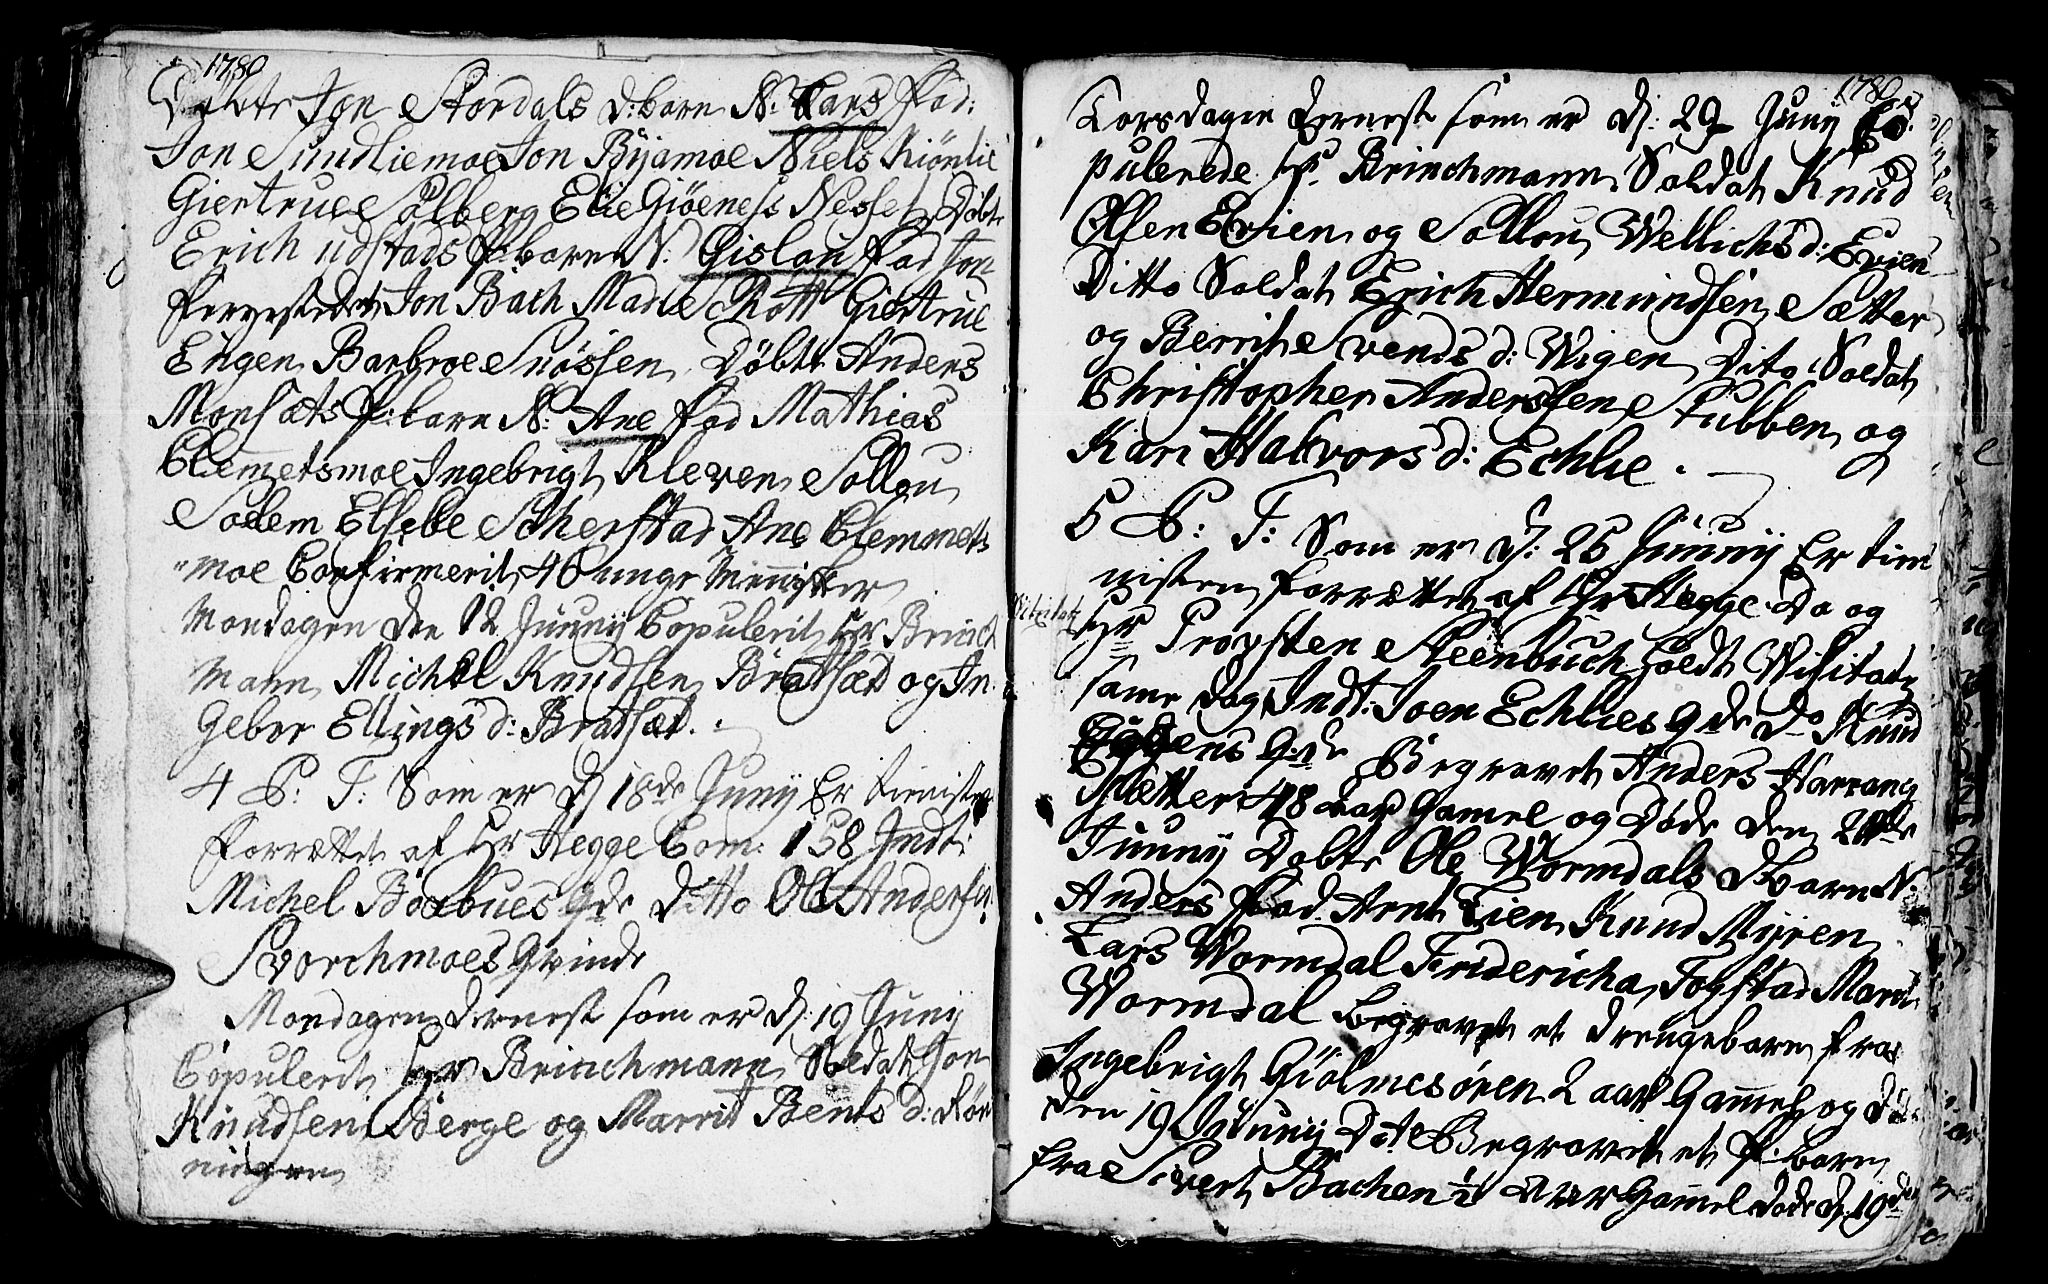 1780
Døbte Jon Stordals d: barn N: Lars Fad:
Jon Sundliemoe Jon Byamoe Niels Kiønlie
Giertrue Solberg Elie Giøeness Nesset Døbte
Erich udstads P: barn N: Gislou Fad Jon
Fergestedet Jon Bach Marie Schott Giertrue
Engen Barbroe Snøssen Døbte Anders
Monsæts P: barn N: Ane Fad Mathias
Clemetsmoe Ingebrigt Kleven Sollou
Solem Elsebe Scherstad Ane Clemmets
moe Confirmerit 46 unge Mennisker
Mondagen den 12 Junij Copulerit Hr Brinch
mann Michel Knudsen Bratsæt og In
geber Ellings d: Bratsæt.
4 P: T: Som er dj 18de Junij Er tienisten
forrættet af Hr Hegge Com: 158 Indt:
Michel Boxbues Qde Ditto Ole Andersen
Svorchmoes Qvinde
Mondagen dernest som er dj 19 Junij
Copulerit Hr Brinchmann Soldat Jon
Knudsen Berge og Marrit Bents d: Røn
ningen
1780
Torsdagen dernest som er dj: 29 Junij Co
pulerede Hr. Brinchmann Soldat Knud
Olsen Evien og Sollou Wellichs d: Evien
Ditto Soldat Erich Hermundsen Sætter
og Berrit Svends d: Wigen Dito Soldat
Christopher Anderssen Stubben og
Kari Halvors d: Echlie.
5 P: T: Som er dj: 25 Junij Er tien
nisten forrættet af Hr Hegge Do og
Visitatz
Hr Propsten Steenbuch holdt Visitatz
same dag Indt: Joen Echlies Qde Do Knud
Qde Begravet Anders Harrang
Sætter 48 aar Gamel og døde den
Junij Døbte Ole Wormdals d barn N:
Anders Fad: Arnt Lien Knud Myren
Lars Wormdal Fridericha Fogstad Marit
Wormdal Begravet et drengebarn fra
Ingebrigt Giølmesøren 2 aar Gamel og døde
den 19 Junij Dito Begravet et P: barn
fra Sivert Bachen ½ Aar Gamel døde dj 19de